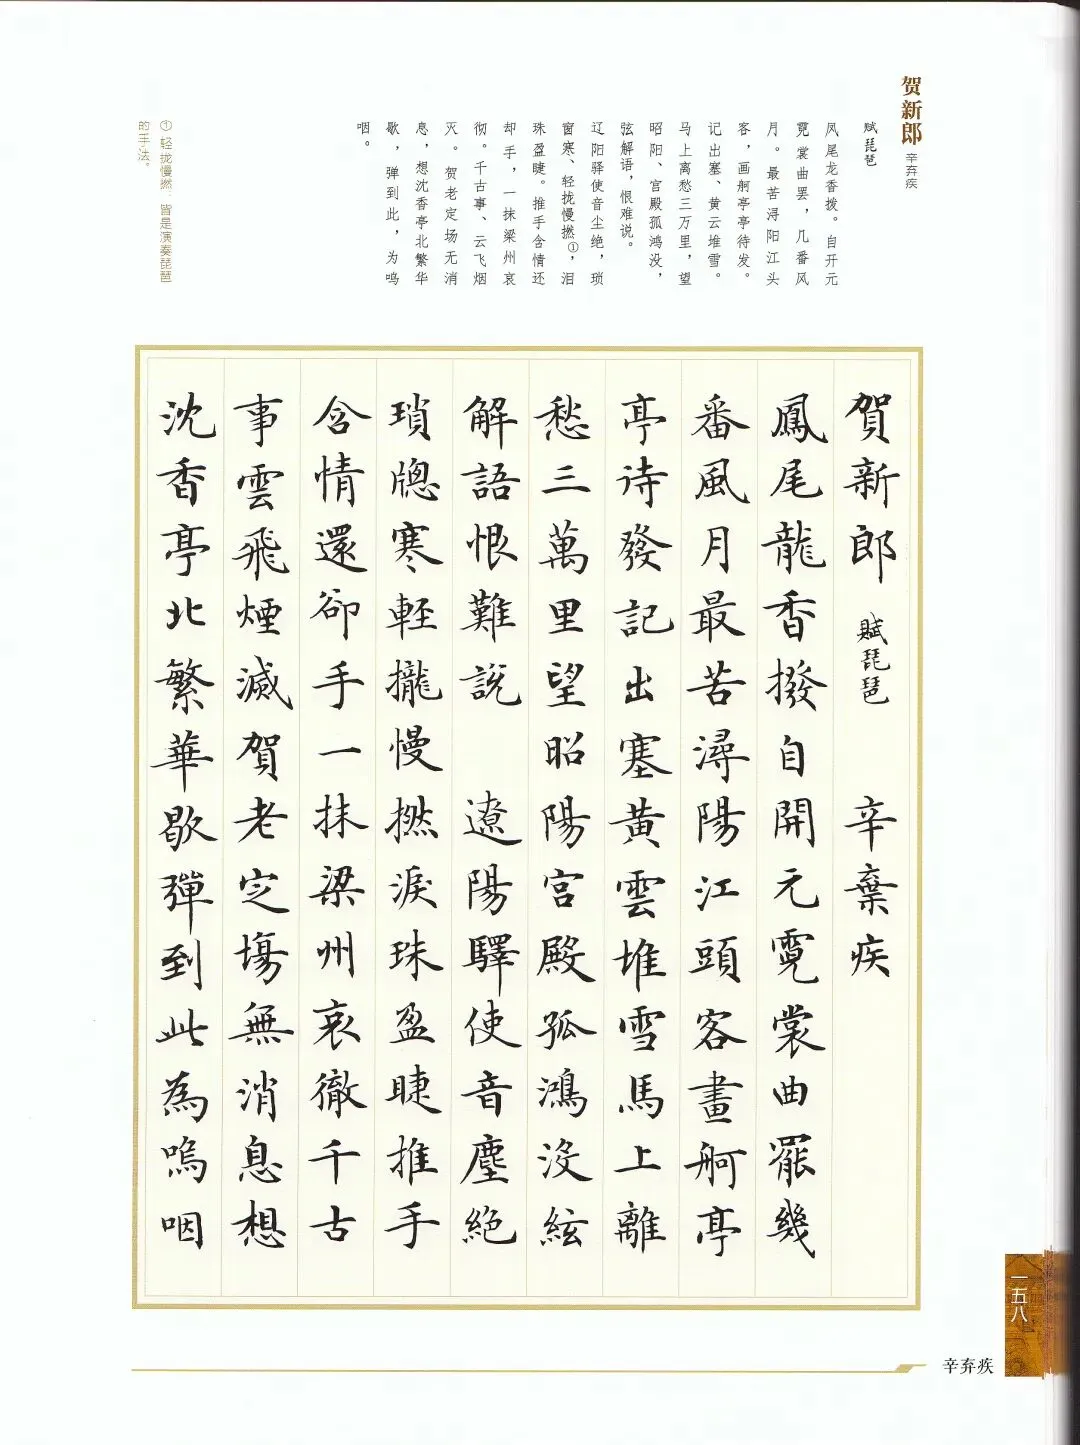 贺新郎 辛弃疾
赋琵琶
凤尾龙香拨。自开元
霓裳曲罢，几番风
月。最苦浔阳江头
客，画舸亭亭待发。
记出塞、黄云堆雪。
马上离愁三万里，望
昭阳、宫殿孤鸿没，
弦解语，恨难说。
辽阳驿使音尘绝，琐
窗寒、轻拢慢撚①，泪
珠盈睫。推手含情还
却手，一抹梁州哀
彻。千古事、云飞烟
灭。贺老定场无消
息，想沈香亭北繁华
歇，弹到此，为呜
咽。
① 轻拢慢撚：皆是演奏琵琶
的手法。
賀新郎 賦琵琶 辛棄疾
鳳尾龍香撥自開元霓裳曲罷幾
番風月最苦潯陽江頭客畫舸亭
亭待發記出塞黃雲堆雪馬上離
愁三萬里望昭陽宮殿孤鴻沒絃
解語恨難說 遼陽驛使音塵絕
瑣牕寒輕攏慢撚淚珠盈睫推手
含情還卻手一抹梁州哀徹千古
事雲飛煙滅賀老定場無消息想
沈香亭北繁華歇彈到此為嗚咽
一五八
辛弃疾